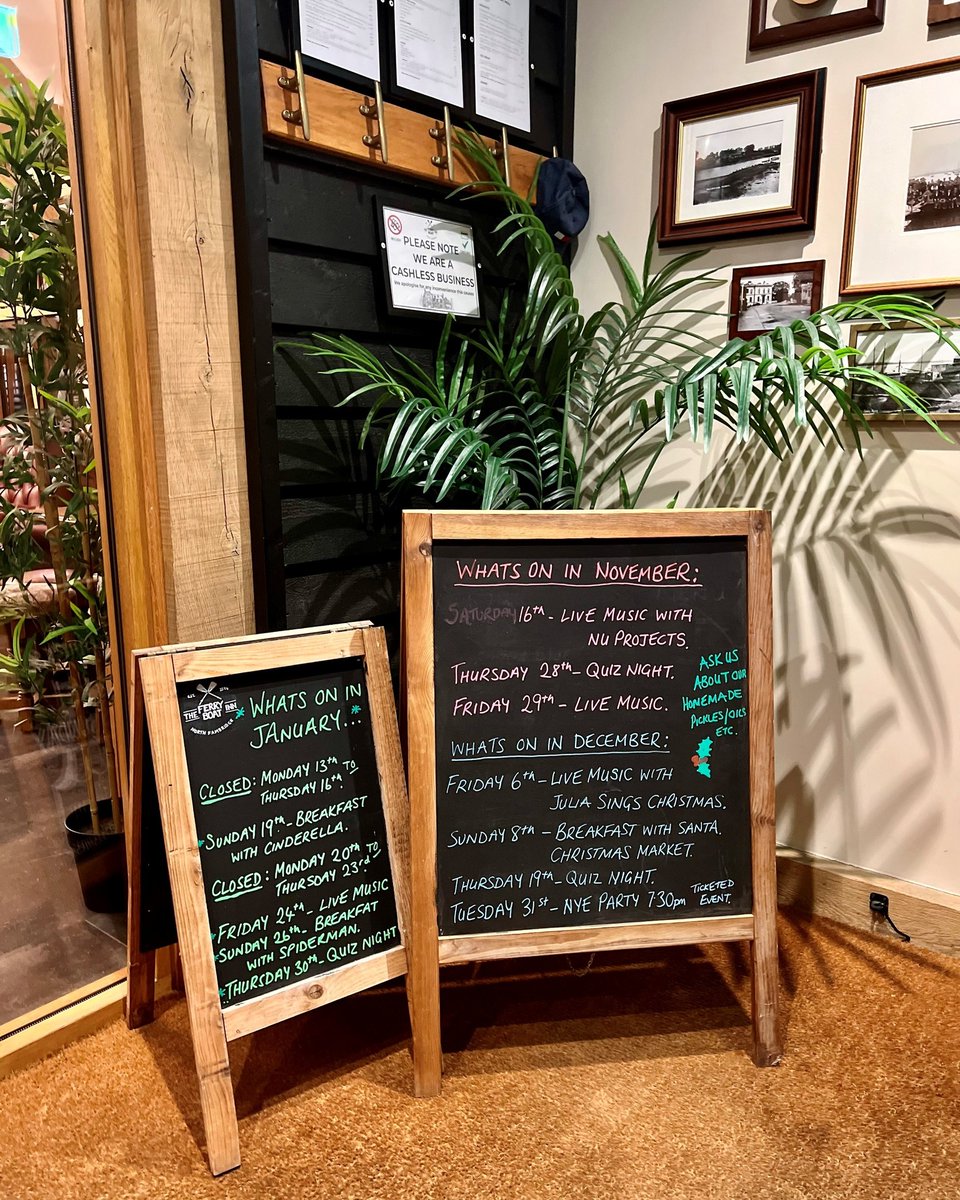 PLEASE NOTE
WE ARE A
CASHLESS BUSINESS
We apologise for any inconvenience this causes
THE FERRY
BOAT INN
NORTH FAMBRIDGE
WHATS ON IN
JANUARY...
CLOSED: MONDAY 13TH TO
THURSDAY 16TH.
SUNDAY 19TH - BREAKFAST
WITH CINDERELLA.
CLOSED: MONDAY 20TH TO
THURSDAY 23RD
FRIDAY 24TH - LIVE MUSIC
SUNDAY 26TH - BREAKFAT
WITH SPIDERMAN.
THURSDAY 30TH - QUIZ NIGHT
WHATS ON IN NOVEMBER:
SATURDAY 16TH - LIVE MUSIC WITH
NU PROJECTS.
THURSDAY 28TH - QUIZ NIGHT.
FRIDAY 29TH - LIVE MUSIC.
ASK US
ABOUT OUR
HOMEMADE
PICKLES/OILS
ETC.
WHATS ON IN DECEMBER:
FRIDAY 6TH - LIVE MUSIC WITH
JULIA SINGS CHRISTMAS.
SUNDAY 8TH - BREAKFAST WITH SANTA.
CHRISTMAS MARKET.
THURSDAY 19TH - QUIZ NIGHT.
TUESDAY 31ST - NYE PARTY 7·30pm
TICKETED
EVENT.